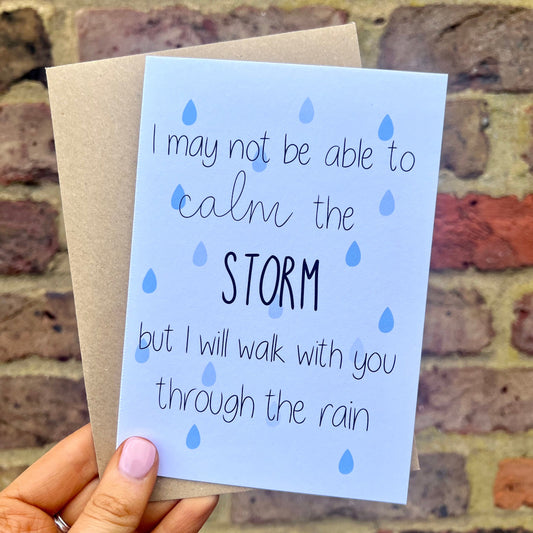 I may not be able to
calm the
STORM
but I will walk with you
through the rain